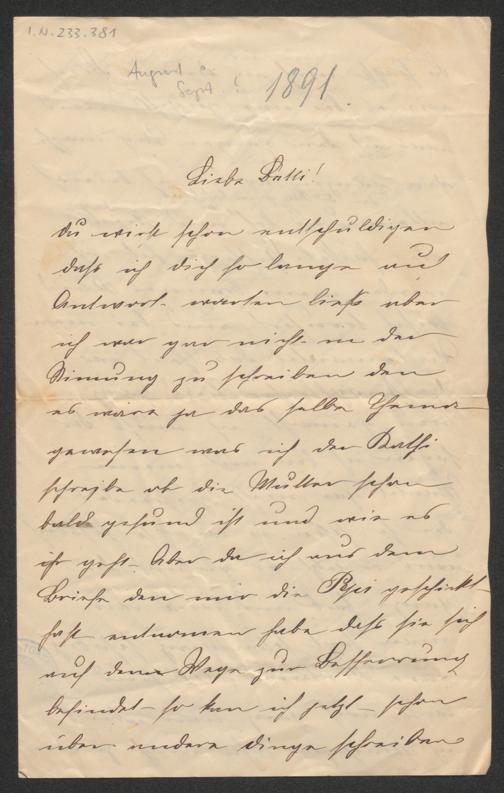 I.N. 233.381
August o.
Sept ?
1891.
Liebe Betti!
Du wirst schon entschuldigen
daß ich dich so lange auf
Antwort warten ließ aber
ich war gar nicht in der
Stimung zu schreiben den
es wäre ja das selbe Thema
gewesen was ich der Kathi
schreibe ob die Mutter schon
bald gesund ist und wie es
ihr geht. Aber da ich aus dem
Briefe den mir die Pepi geschickt
hast entnomen habe daß sie sich
auf dem Wege zur Besserung
befindet so kan ich jetzt schon
über andere Dinge schreiben